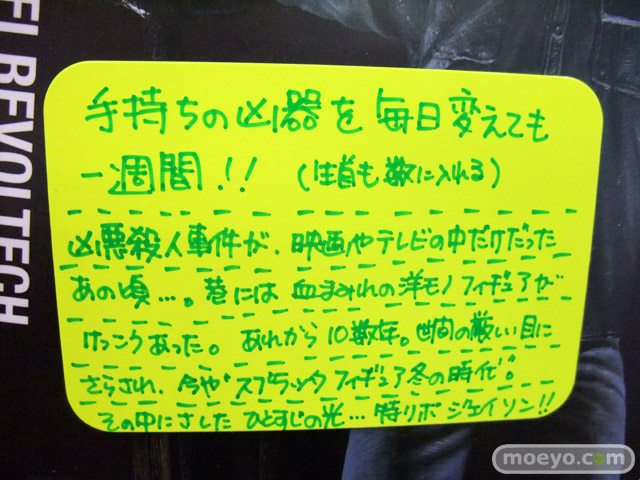 FI REVOLTECH
手持ちの凶器を毎日変えても
一週間!! (生首も数に入れる)
凶悪殺人事件が、映画やテレビの中だけだった
あの頃…。巷には血まみれの洋モノフィギュアが
けっこうあった。あれから10数年。世間の厳しい目に
さらされ、今や“スプラッタフィギュア冬の時代”。
その中にさした ひとすじの光…特リボ ジェイソン!!
moeyo.com